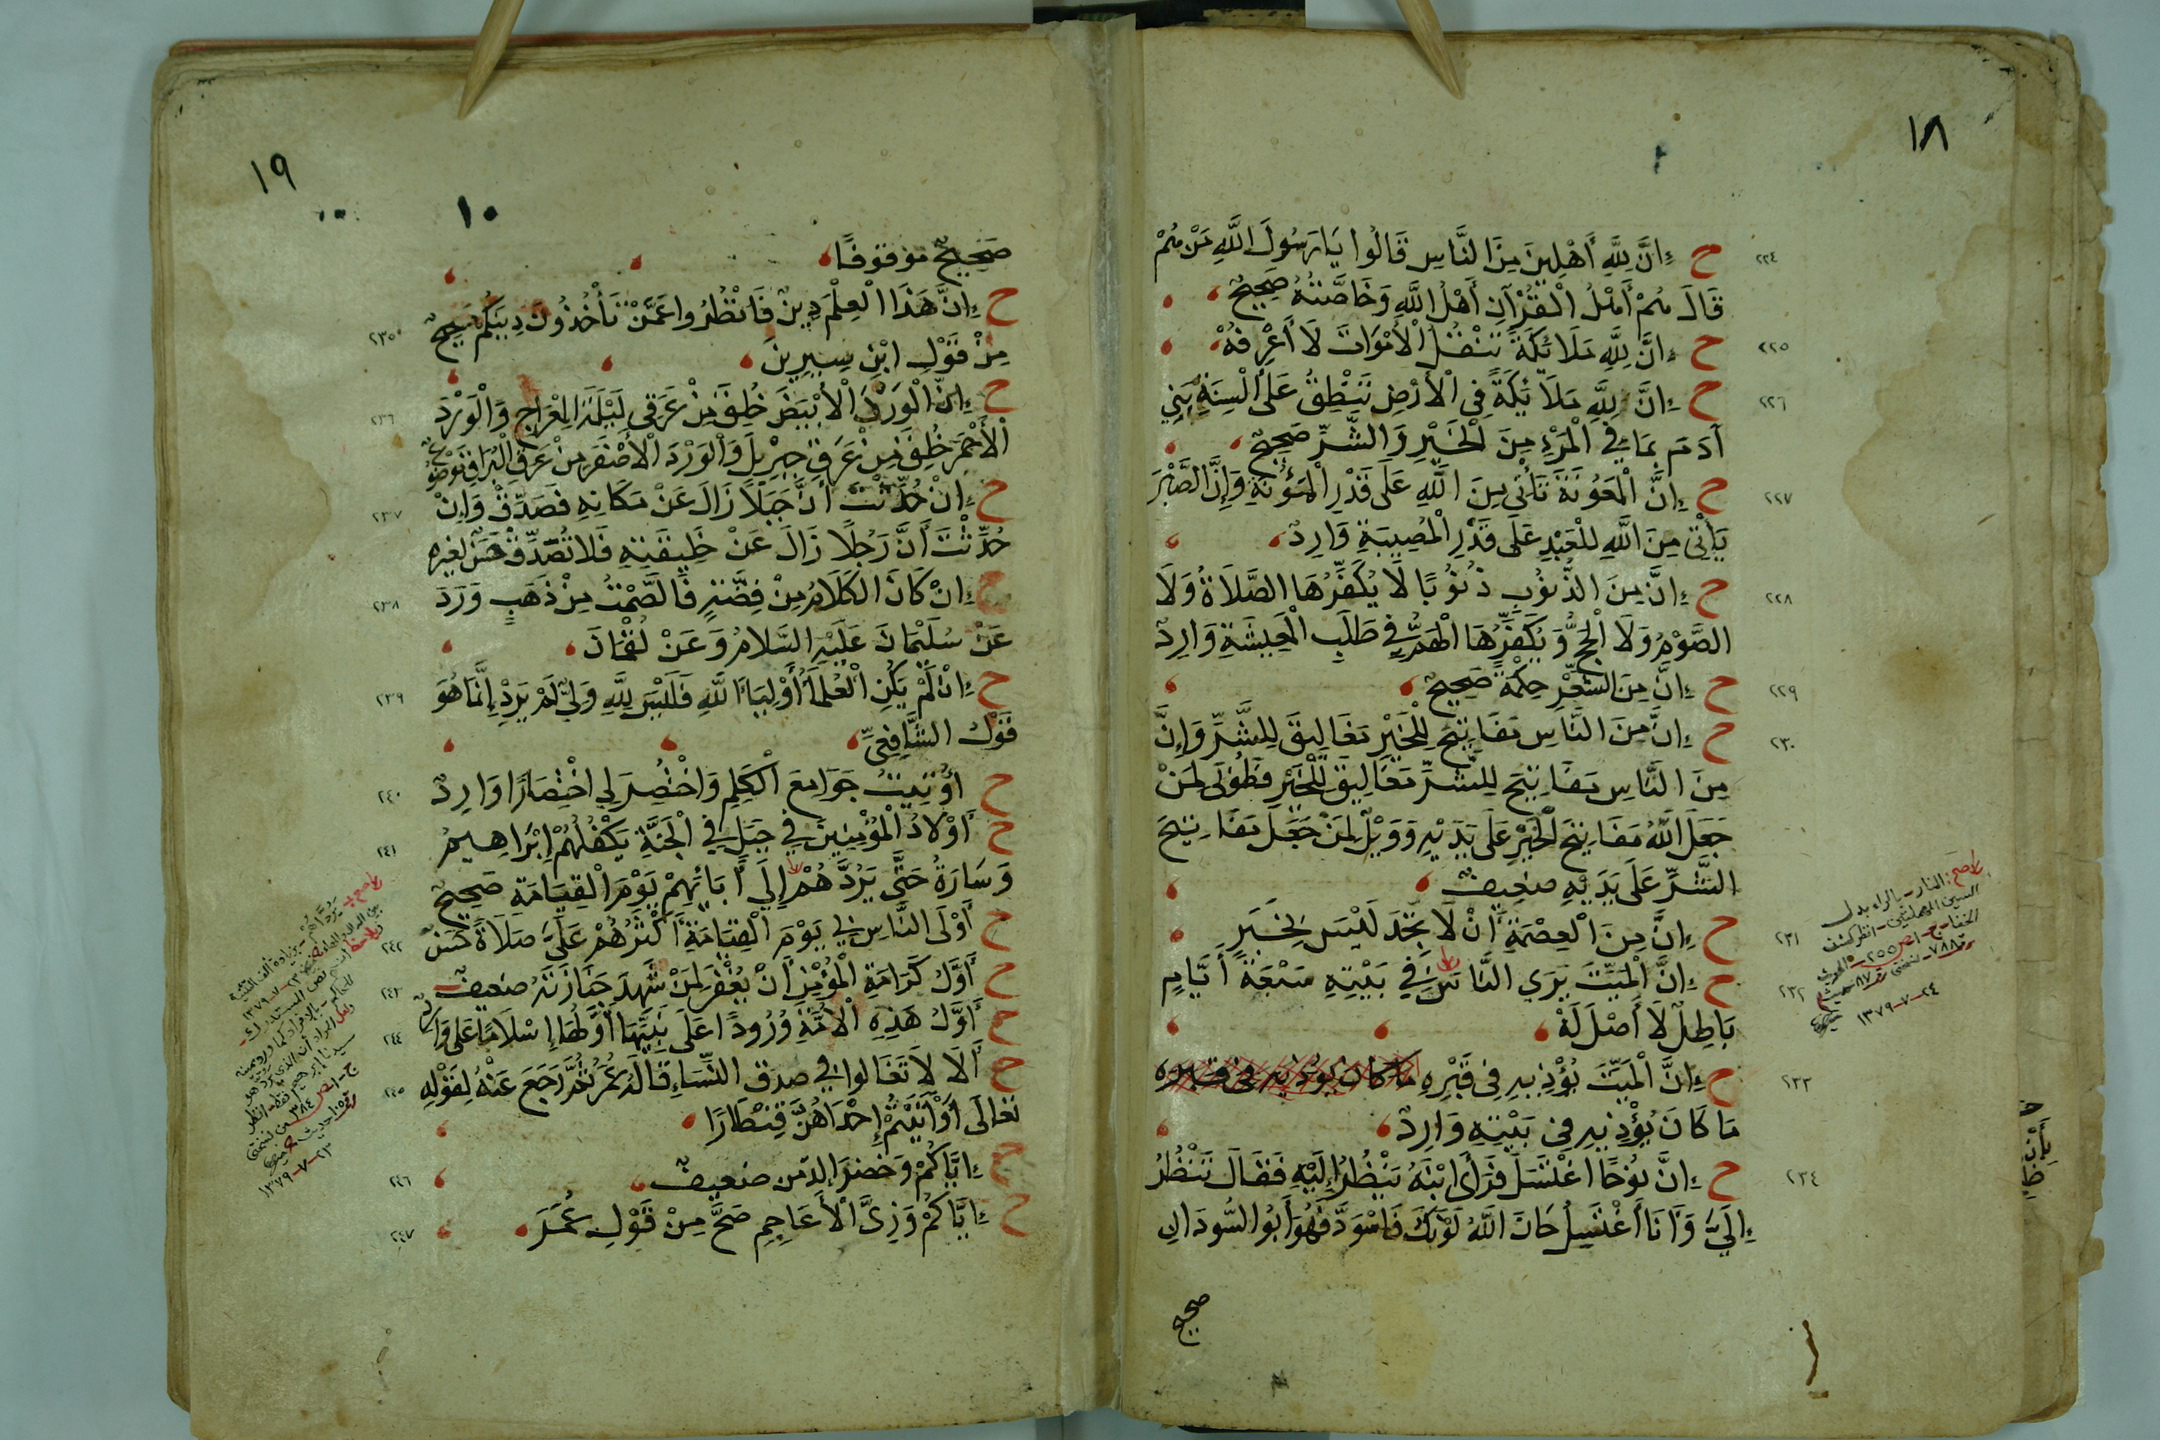 ١٨
٢٢٤ ح إِنَّ لِلَّهِ أَهْلِينَ مِنَ النَّاسِ قَالُوا يَا رَسُولَ اللَّهِ مَنْ هُمْ
قَالَ هُمْ أَهْلُ الْقُرْآنِ أَهْلُ اللَّهِ وَخَاصَّتُهُ صَحِيحٌ
٢٢٥ ح إِنَّ لِلَّهِ مَلَائِكَةً تَنْقُلُ الْأَمْوَاتَ لَا أَعْرِفُهُ
٢٢٦ ح إِنَّ لِلَّهِ مَلَائِكَةً فِي الْأَرْضِ تَنْطِقُ عَلَى أَلْسِنَةِ بَنِي
آدَمَ بِمَا فِي الْمَرْءِ مِنَ الْخَيْرِ وَالشَّرِّ صَحِيحٌ
٢٢٧ ح إِنَّ الْمَعُونَةَ تَأْتِي مِنَ اللَّهِ عَلَى قَدْرِ الْمَؤُنَةِ وَإِنَّ الصَّبْرَ
يَأْتِي مِنَ اللَّهِ لِلْعَبْدِ عَلَى قَدْرِ الْمُصِيبَةِ وَارِدٌ
٢٢٨ ح إِنَّ مِنَ الذُّنُوبِ ذُنُوبًا لَا يُكَفِّرُهَا الصَّلَاةُ وَلَا
الصَّوْمُ وَلَا الْحَجُّ وَيُكَفِّرُهَا الْهَمُّ فِي طَلَبِ الْمَعِيشَةِ وَارِدٌ
٢٢٩ ح إِنَّ مِنَ الشِّعْرِ حِكْمَةً صَحِيحٌ
٢٣٠ ح إِنَّ مِنَ النَّاسِ مَفَاتِيحَ لِلْخَيْرِ مَغَالِيقَ لِلشَّرِّ وَإِنَّ
مِنَ النَّاسِ مَفَاتِيحَ لِلشَّرِّ مَغَالِيقَ لِلْخَيْرِ فَطُوبَى لِمَنْ
جَعَلَ اللَّهُ مَفَاتِيحَ الْخَيْرِ عَلَى يَدَيْهِ وَوَيْلٌ لِمَنْ جَعَلَ مَفَاتِيحَ
الشَّرِّ عَلَى يَدَيْهِ ضَعِيفٌ
٢٣١ ح إِنَّ مِنَ الْعِصْمَةِ أَنْ لَا تَجِدَ لَيْسَ بِخَبَرٍ
٢٣٢ ح إِنَّ الْمَيِّتَ يَرَى النَّاسَ فِي بَيْتِهِ سَبْعَةَ أَيَّامٍ
بَاطِلٌ لَا أَصْلَ لَهُ
٢٣٣ ح إِنَّ الْمَيِّتَ يُؤْذِيهِ فِي قَبْرِهِ مَا كَانَ يُؤْذِيهِ فِي قَبْرِهِ
مَا كَانَ يُؤْذِيهِ فِي بَيْتِهِ وَارِدٌ
٢٣٤ ح إِنَّ نُوحًا اغْتَسَلَ فَرَأَى ابْنَهُ يَنْظُرُ إِلَيْهِ فَقَالَ تَنْظُرُ
إِلَيَّ وَأَنَا أَغْتَسِلُ حَاتَ اللَّهُ لَوْنَكَ فَاسْوَدَّ فَهُوَ أَبُو السُّودَانِ
صحيح
صح: النار - بالراء بدل
السين المهملتين - انظر كشف
الخفا ج ١ ص ٢٥٥
٢٤-٧-١٣٧٩
١٩
١٠
صَحِيحٌ مَوْقُوفًا
ح إِنَّ هَذَا الْعِلْمَ دِينٌ فَانْظُرُوا عَمَّنْ تَأْخُذُونَ دِينَكُمْ صَحِيحٌ ٢٣٥
مِنْ قَوْلِ ابْنِ سِيرِينَ
ح إِنَّ الْوَرْدَ الْأَبْيَضَ خُلِقَ مِنْ عَرَقِي لَيْلَةَ الْمِعْرَاجِ وَالْوَرْدَ ٢٣٦
الْأَحْمَرَ خُلِقَ مِنْ عَرَقِ جِبْرِيلَ وَالْوَرْدَ الْأَصْفَرَ مِنْ عَرَقِ الْبُرَاقِ مَوْضُوعٌ
ح إِنْ حُدِّثْتَ أَنَّ جَبَلًا زَالَ عَنْ مَكَانِهِ فَصَدِّقْ وَإِنْ ٢٣٧
حُدِّثْتَ أَنَّ رَجُلًا زَالَ عَنْ خَلِيقَتِهِ فَلَا تُصَدِّقْ حَسَنٌ لِغَيْرِهِ
ح إِنْ كَانَ الْكَلَامُ مِنْ فِضَّةٍ فَالصَّمْتُ مِنْ ذَهَبٍ وَرَدَ ٢٣٨
عَنْ سُلَيْمَانَ عَلَيْهِ السَّلَامُ وَعَنْ لُقْمَانَ
ح إِنْ لَمْ يَكُنِ الْعُلَمَاءُ أَوْلِيَاءَ اللَّهِ فَلَيْسَ لِلَّهِ وَلِيٌّ لَمْ يَرِدْ إِنَّمَا هُوَ ٢٣٩
قَوْلُ الشَّافِعِيِّ
ح أُوتِيتُ جَوَامِعَ الْكَلِمِ وَاخْتُصِرَ لِي اخْتِصَارًا وَارِدٌ ٢٤٠
ح أَوْلَادُ الْمُؤْمِنِينَ فِي جَبَلٍ فِي الْجَنَّةِ يَكْفُلُهُمْ إِبْرَاهِيمُ ٢٤١
وَسَارَةُ حَتَّى يَرُدَّهُمْ إِلَى آبَائِهِمْ يَوْمَ الْقِيَامَةِ صَحِيحٌ
ح أَوْلَى النَّاسِ بِي يَوْمَ الْقِيَامَةِ أَكْثَرُهُمْ عَلَيَّ صَلَاةً حَسَنٌ ٢٤٢
ح أَوَّلُ كَرَامَةِ الْمُؤْمِنِ أَنْ يُغْفَرَ لِمَنْ شَهِدَ جَنَازَتَهُ ضَعِيفٌ ٢٤٣
ح أَوَّلُ هَذِهِ الْأُمَّةِ وُرُودًا عَلَى نَبِيِّهَا أَوَّلُهَا إِسْلَامًا عَلِيٌّ وَارِدٌ ٢٤٤
ح أَلَا لَا تَغَالَوا فِي صَدَقِ النِّسَاءِ قَالَهُ عُمَرُ ثُمَّ رَجَعَ عَنْهُ لِقَوْلِهِ ٢٤٥
تَعَالَى أَوْ آتَيْتُمْ إِحْدَاهُنَّ قِنْطَارًا
ح إِيَّاكُمْ وَخَضْرَا الدِّمَنِ ضَعِيفٌ ٢٤٦
ح إِيَّاكُمْ وَزِيَّ الْأَعَاجِمِ صَحَّ مِنْ قَوْلِ عُمَرَ ٢٤٧
٢٣-٧-١٣٧٩